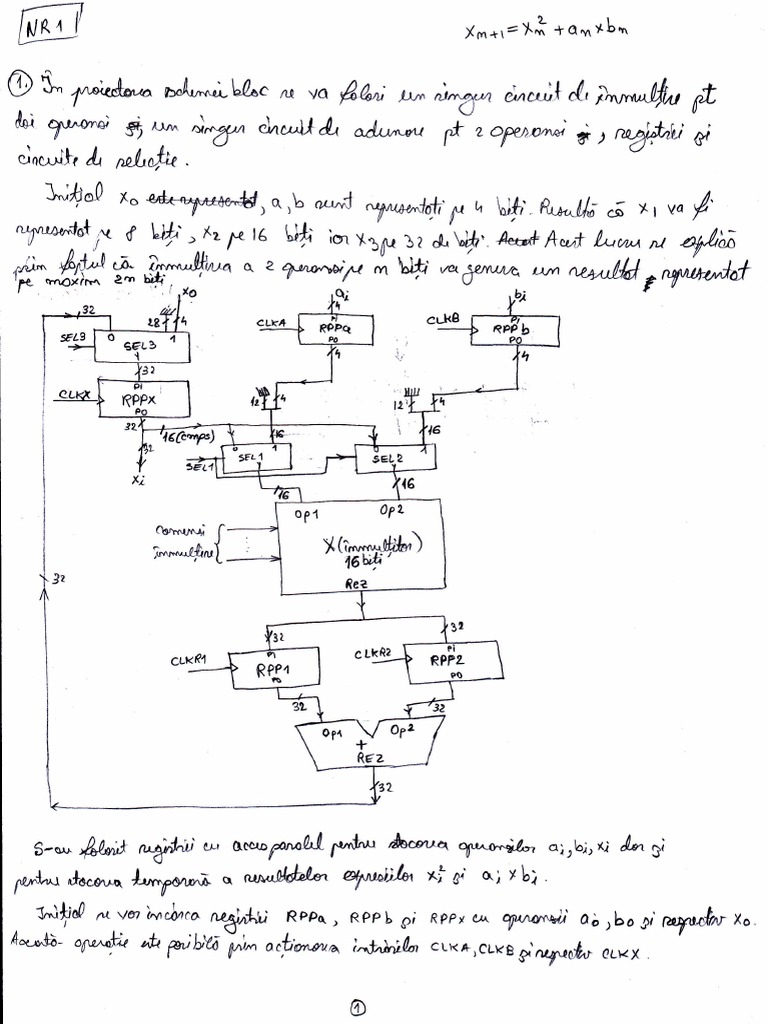 NR 1
x_{n+1} = x_n^2 + a_n x b_n
1. În proiectarea schemei bloc se va folosi un singur circuit de înmulțire pt
doi operanzi și, un singur circuit de adunare pt 2 operanzi și, registrii și
circuite de selecție.
Inițial x0 este reprezentat, a, b sunt reprezentați pe 4 biți. Rezultă că x1 va fi
reprezentat pe 8 biți, x2 pe 16 biți iar x3 pe 32 de biți. Acest Acest lucru se explică
prin faptul că înmulțirea a 2 operanzi pe n biți va genera un rezultat reprezentat
pe maxim 2n biți
32
x0
28 4
SEL3
0 SEL3 1
Y
32
CLKX
PI
RPPX
PO
32
16 (cmps)
32
xi
ai
4
CLKA
PI
RPPa
PO
4
12 4
16
bi
4
CLKB
PI
RPPb
PO
4
12 4
16
SEL1
0 1
SEL1
Y
0 1
SEL2
16
16
Op1 Op2
comenzi
înmulțire
X (înmulțitor)
16 biți
Rez
32
32
32
CLKR1
PI
RPP1
PO
CLKR2
PI
RPP2
PO
32
32
Op1 Op2
+
REZ
32
S-au folosit registrii cu acces paralel pentru stocarea operanzilor ai, bi, xi dar și
pentru stocarea temporară a rezultatelor expresiilor xi^2 și ai x bi.
Inițial se vor încărca registrii RPPa, RPPb și RPPx cu operanzii a0, b0 și respectiv x0.
Această operație este posibilă prin acționarea intrărilor CLKA, CLKB și respectiv CLKX.
1